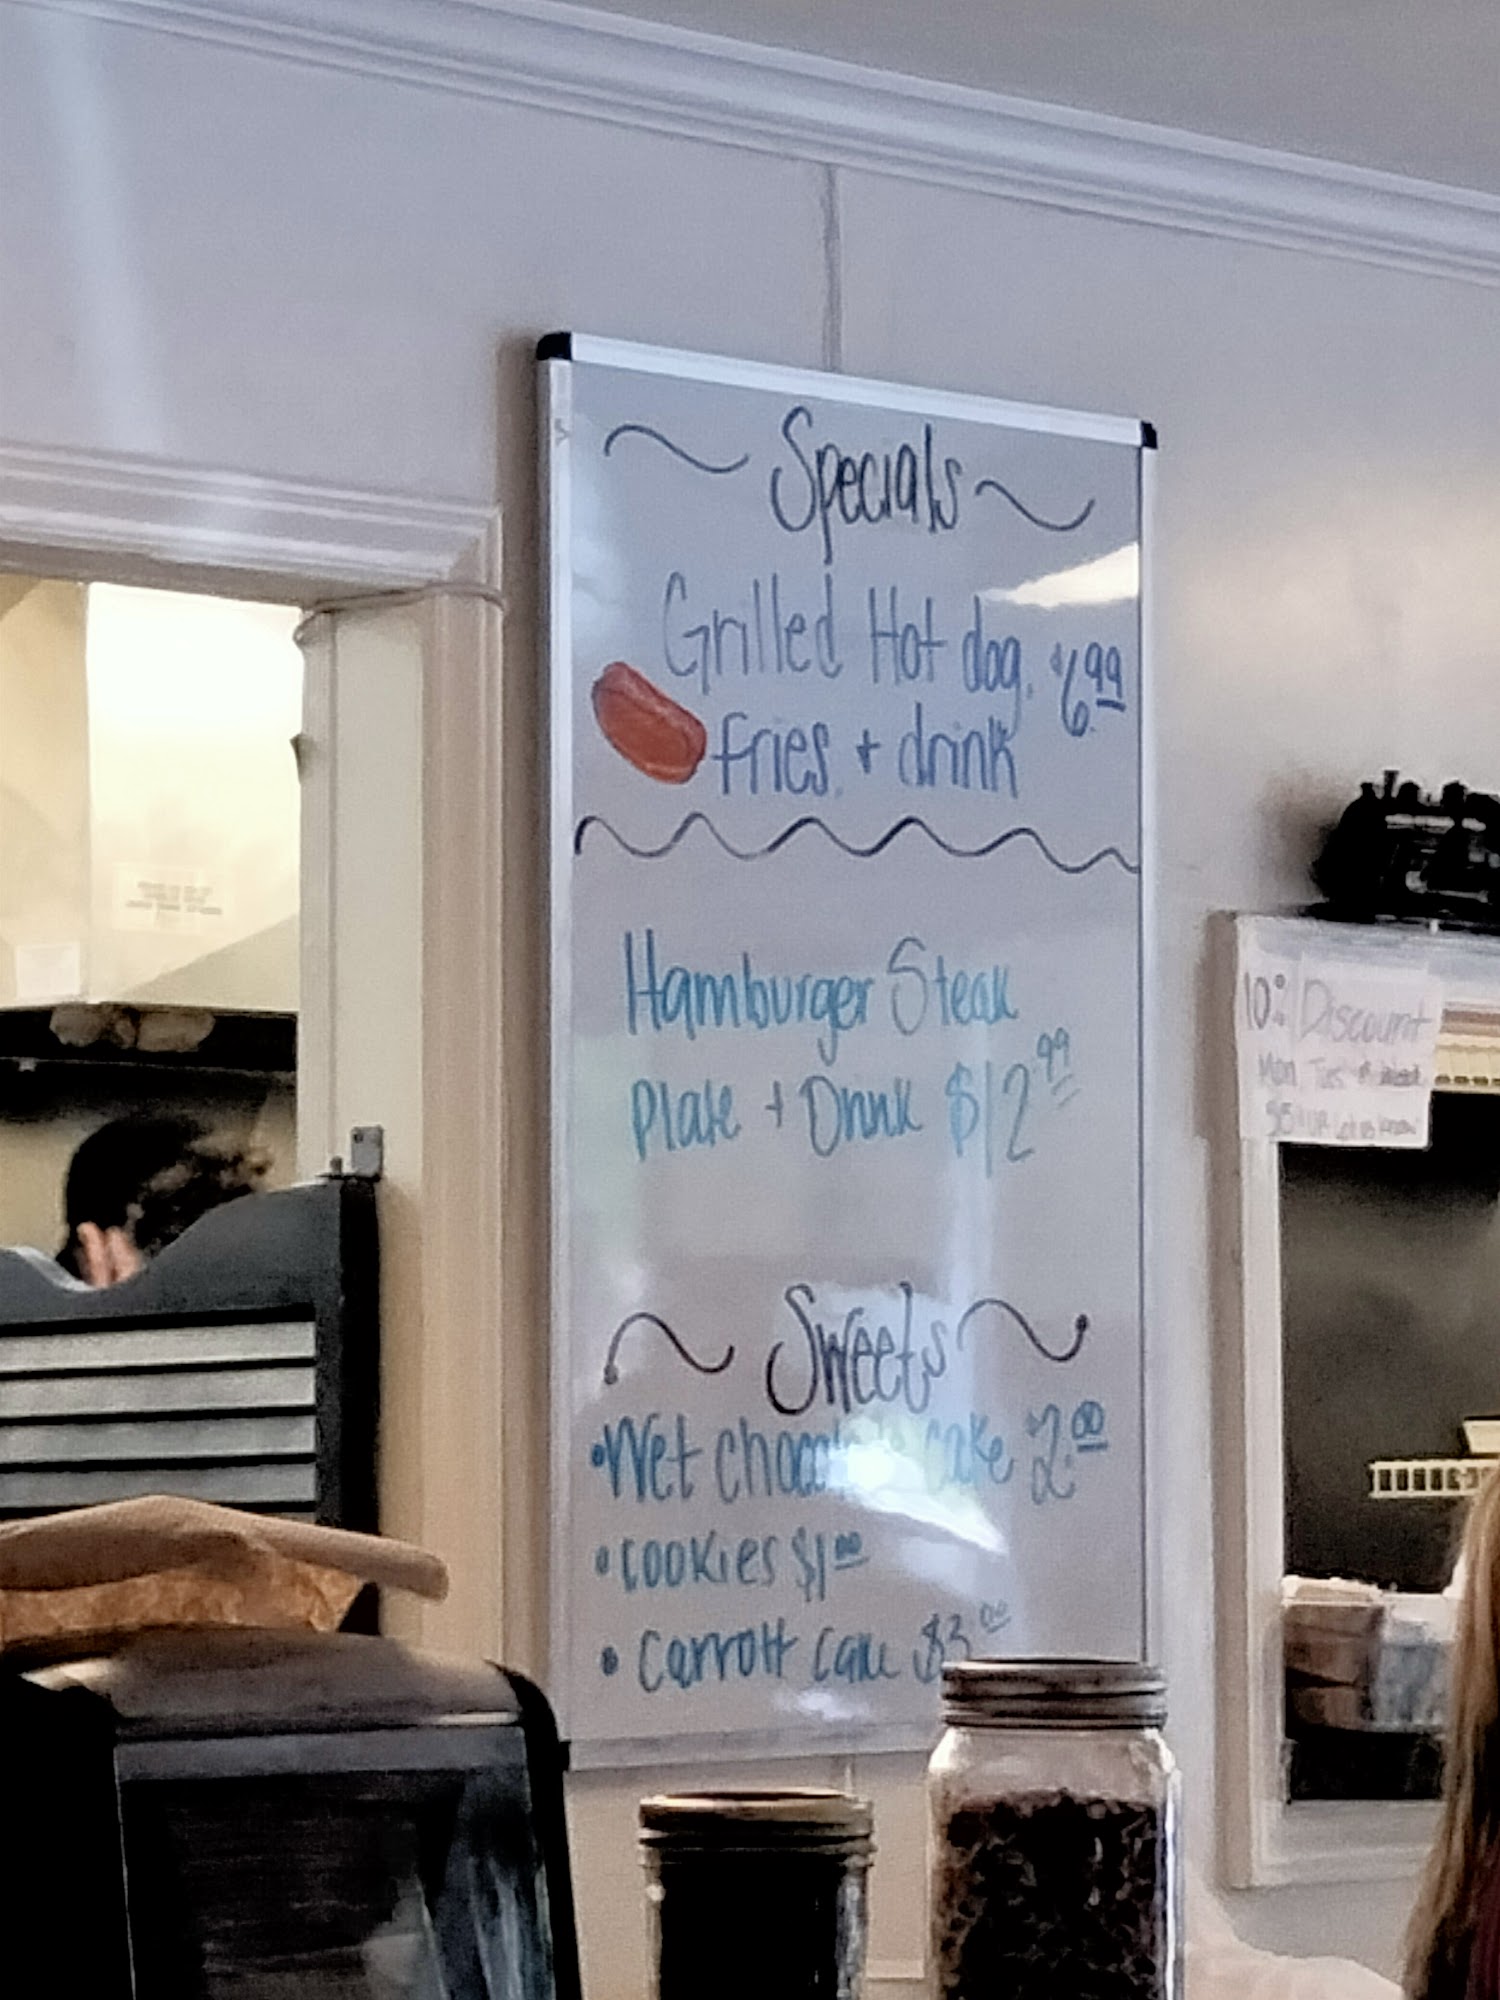 Specials
Grilled Hot dog, $6.99
fries + drink
Hamburger Steak
Plate + Drink $12.99
Sweets
• Wet chocolate cake $2.00
• cookies $1.00
• carrott cake $3.00
10% Discount
Mon Tues + Wed
55 + up Let us know